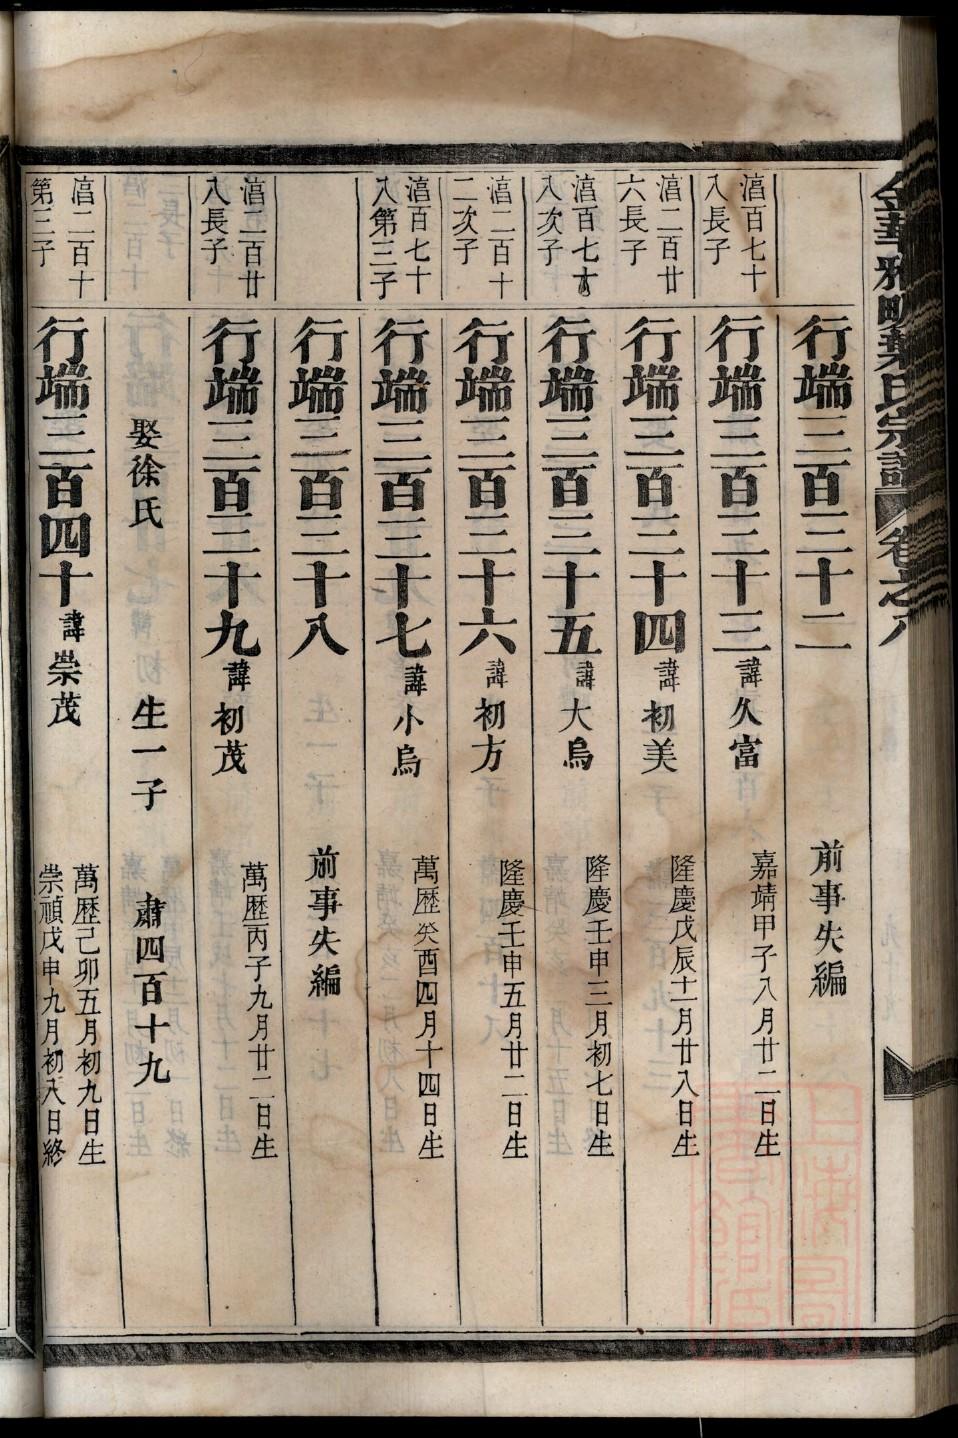 金華雅畈葉氏宗譜 卷之八
行端三百三十二 前事失編
湻百七十
八長子
行端三百三十三 諱久富 嘉靖甲子八月廿二日生
湻二百廿
六長子
行端三百三十四 諱初美 隆慶戊辰十一月廿八日生
湻百七十
八次子
行端三百三十五 諱大烏 隆慶壬申三月初七日生
湻二百十
二次子
行端三百三十六 諱初方 隆慶壬申五月廿二日生
湻百七十
八第三子
行端三百三十七 諱小烏 萬歷癸酉四月十四日生
行端三百三十八 前事失編
湻二百廿
八長子
行端三百三十九 諱初茂 萬歷丙子九月廿二日生
娶徐氏 生一子 肅四百十九
湻二百十
第三子
行端三百四十 諱崇茂 萬歷己卯五月初九日生
崇禎戊申九月初八日終
上海圖書館藏